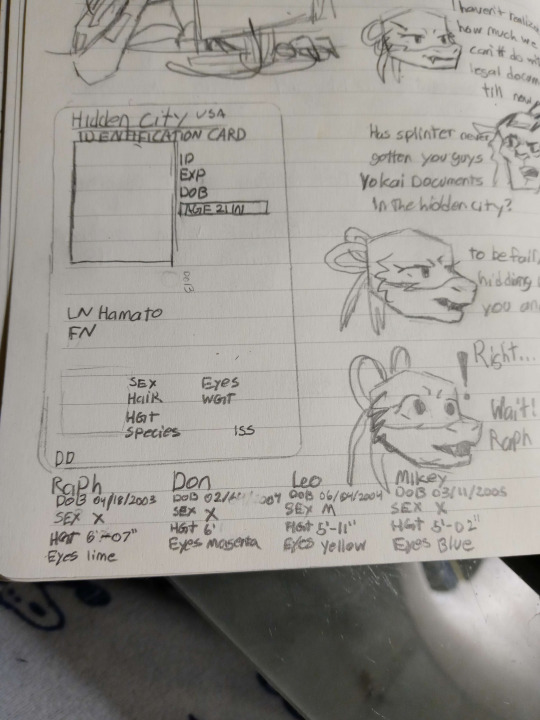 I haven't realize
how much we
can't do wit
legal docum
till now
Hidden City USA
IDENTIFICATION CARD
ID
EXP
DOB
AGE 21 IN
Has splinter never
gotten you guys
Yokai Documents
In the hidden city?
to be fair,
hidding
you an
LN Hamato
FN
SEX Eyes
HaiR WGT
HGT
Species ISS
DD
Right...
Wait!
Raph
Raph
DOB 04/18/2003
SEX X
HGT 6'-07"
Eyes lime
Don
DOB 02/
SEX X
HGT 6'
Eyes Magenta
Leo
DOB 06/04/2004
SEX M
HGT 5'-11"
Eyes Yellow
Mikey
DOB 03/11/2005
SEX X
HGT 5'-02"
Eyes Blue